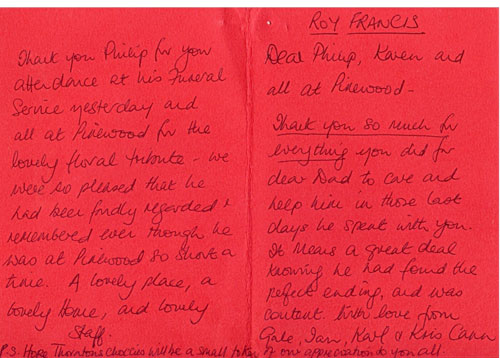 ROY FRANCIS
Dear Philip, Karen and
all at Pinewood -
Thank you so much for
everything you did for
dear Dad to care and
help him in those last
days he spent with you.
It means a great deal
knowing he had found the
perfect ending, and was
content. With love from
Gale, Ian, Karl & Kris Cann
Thank you Philip for your
attendance at his Funeral
Service yesterday and
all at Pinewood for the
lovely floral tribute - we
were so pleased that he
had been fondly regarded &
remembered even though he
was at Pinewood so short a
time. A lovely place, a
lovely Home, and lovely
Staff.
P.S. Hope Thorntons choccies will be a small token of our appreciation to you all.